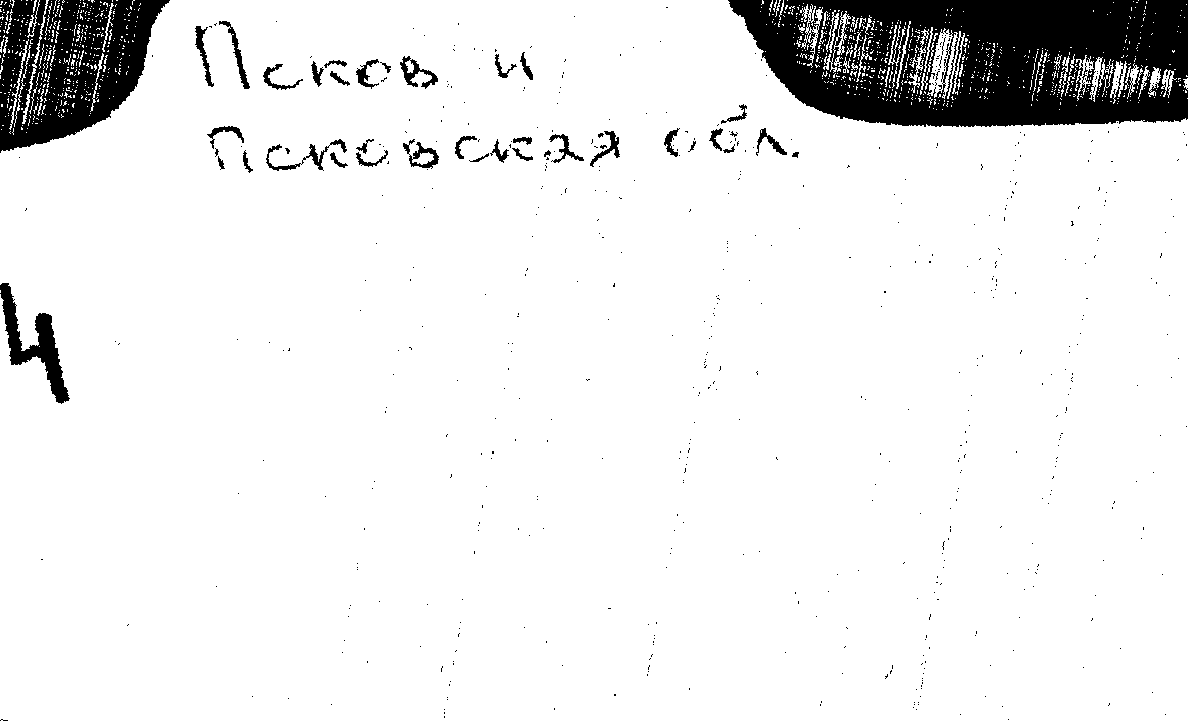 Псков и
Псковская обл.
4